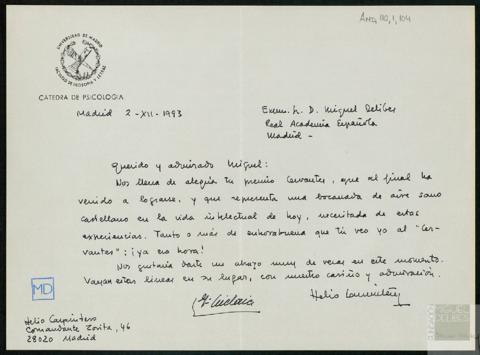 AMD, 110, 1, 104
UNIVERSIDAD DE MADRID
FACULTAD DE FILOSOFIA Y LETRAS
CATEDRA DE PSICOLOGIA
Madrid 2-XII-1993
Excmo. Sr. D. Miguel Delibes
Real Academia Española
Madrid -
Querido y admirado Miguel:
Nos llena de alegría tu premio Cervantes, que al final ha
venido a lograrse, y que representa una bocanada de aire sano
castellano en la vida intelectual de hoy, necesitada de estas
experiencias. Tanto o más de enhorabuena que tú veo yo al "Cer-
vantes": ¡ya era hora!
Nos gustaría darte un abrazo muy de veras en este momento.
Vayan estas líneas en su lugar, con nuestro cariño y admiración.
Helio Carpintero
MD
Helio Carpintero
Comandante Zorita, 46
28020 Madrid